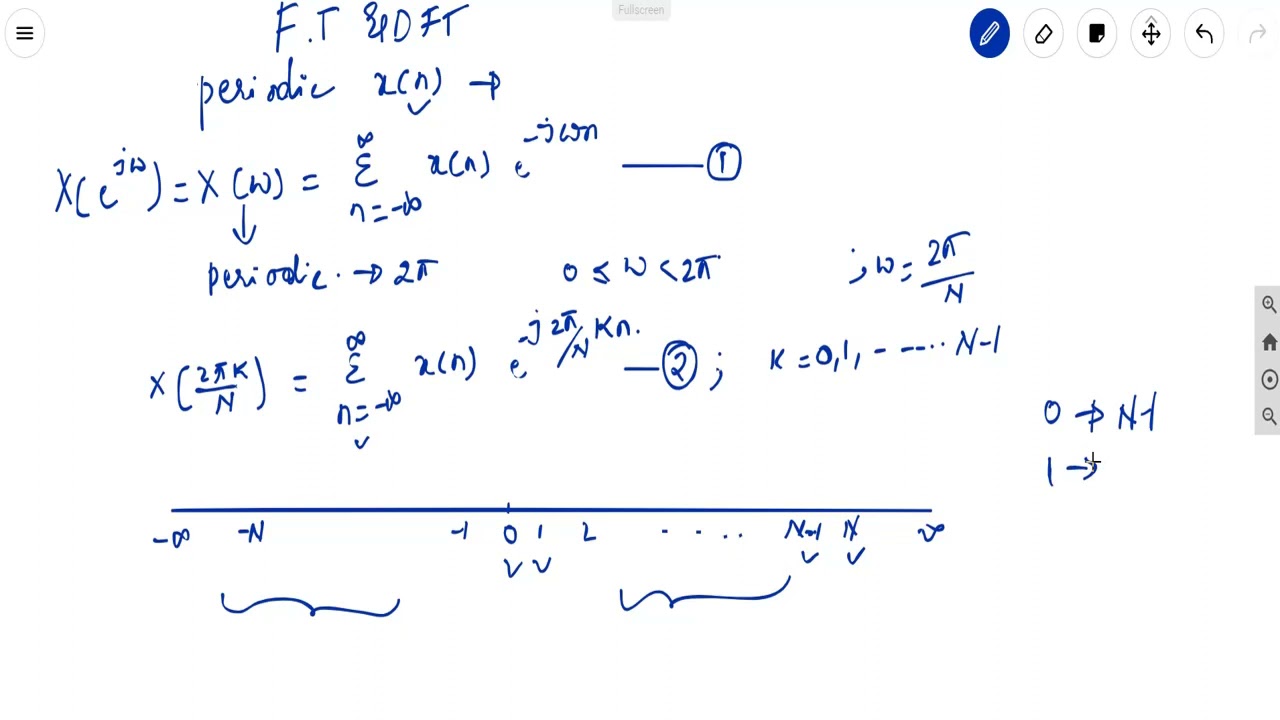 Fullscreen
F.T & DFT
periodic x(n) →
X(e^{jω}) = X(ω) = ∞ Σ n=-∞ x(n) e^{-jωn} —— ①
↓
periodic. → 2π 0 ≤ ω < 2π ; ω = 2π/N
X(2πK/N) = ∞ Σ n=-∞ x(n) e^{-j2π/N Kn.} — ② ; K = 0,1, - ---.. N-1
0 → N-1
1 →
-∞ -N -1 0 1 2 . . . . N-1 N ∞